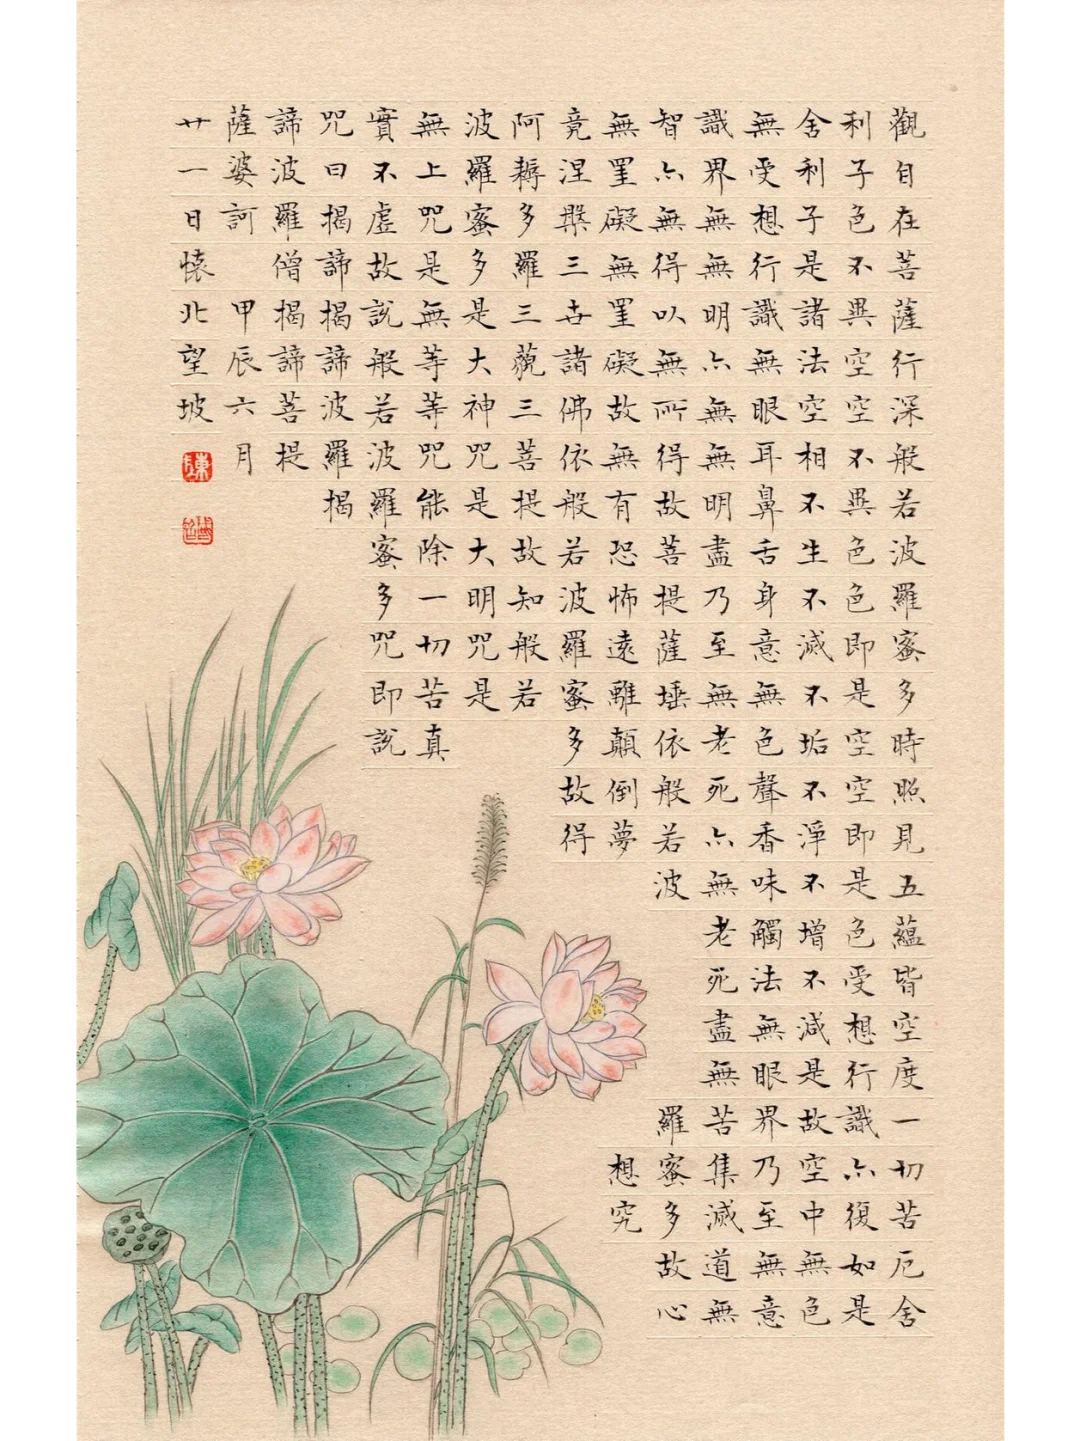 觀自在菩薩行深般若波羅蜜多時照見五蘊皆空度一切苦厄舍
利子色不異空空不異色色即是空空即是色受想行識亦復如是
舍利子是諸法空相不生不滅不垢不淨不增不減是故空中無色
無受想行識無眼耳鼻舌身意無色聲香味觸法無眼界乃至無意
識界無無明亦無無明盡乃至無老死亦無老死盡無苦集滅道無
智亦無得以無所得故菩提薩埵依般若波羅蜜多故心
無罣礙無罣礙故無有恐怖遠離顛倒夢想究
竟涅槃三世諸佛依般若波羅蜜多故得
阿耨多羅三藐三菩提故知般若
波羅蜜多是大神咒是大明咒是
無上咒是無等等咒能除一切苦真
實不虛故說般若波羅蜜多咒即說
咒曰揭諦揭諦波羅揭
諦波羅僧揭諦菩提
薩婆訶 甲辰六月
廿一日懷北望坡